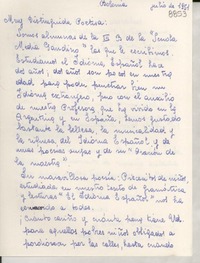 Palermo julio de 1951
8853
Muy Distinguida Poetisa:
Somos alumnas de la II B de la "Scuola
Media Gaudino" las que le escribimos.
Estudiamos el Idioma Español hace
dos años, dos años son pocos en nuestra
edad para poder penetrar bien un
Idioma extranjero, pero con el auxilio
de nuestra Profesora que ha vivido en
Argentina y en España, hemos gustado
bastante la belleza, la musicalidad y
la riqueza del Idioma Español y de
unas poesías suyas y de su "Oración de
la maestra".
Su maravillosa poesía: Piececitos de niños,
estudiada en nuestro texto de gramática
y lecturas "El Idioma Español" nos ha
a todas.
¡Cuánto cariño y cuánta pena tiene Ud.
para aquellos pobres niños obligados a
pordiosear por las calles, hasta cuando